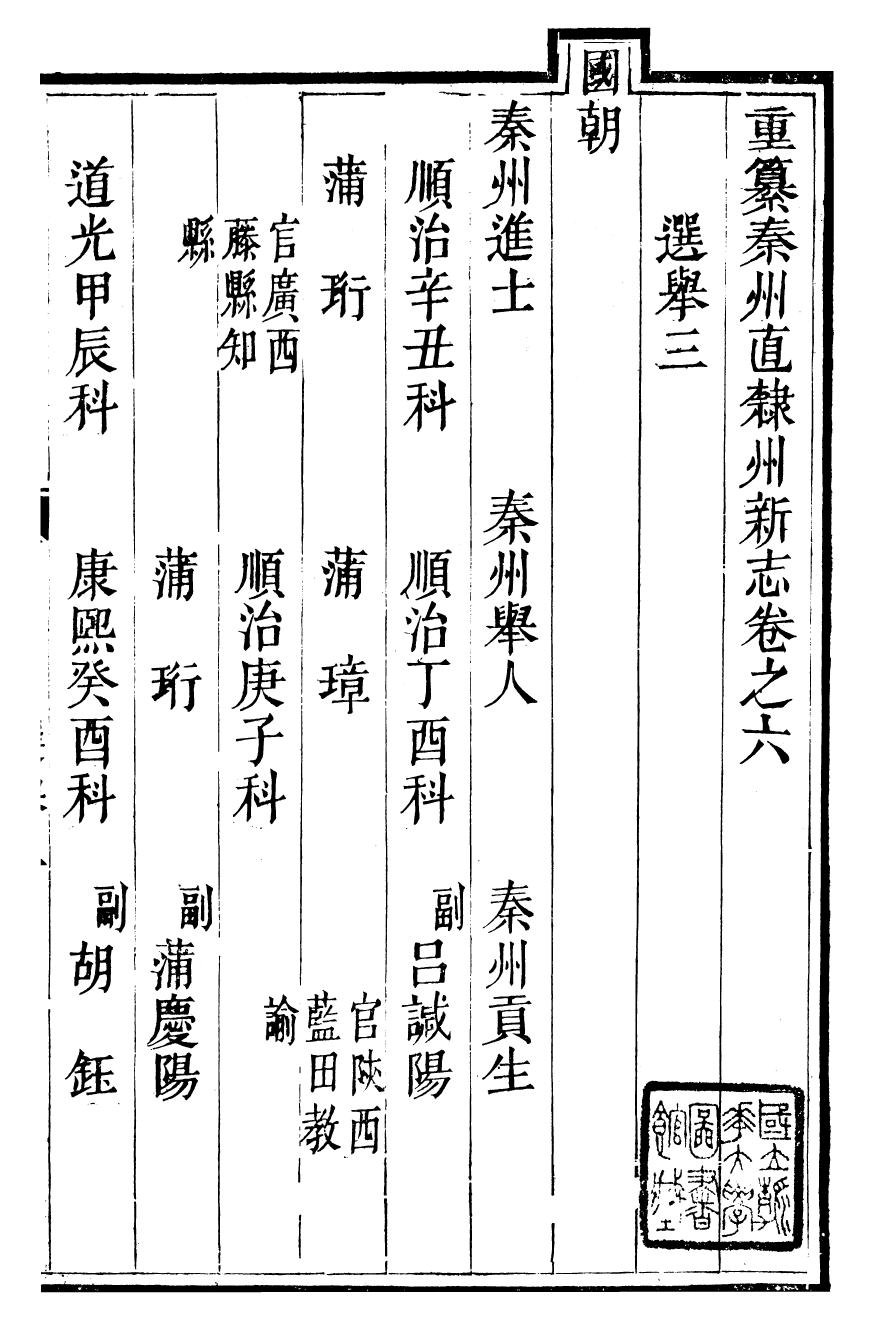 重纂秦州直隸州新志卷之六
選舉三
國朝
秦州進士　秦州舉人　秦州貢生
順治辛丑科　順治丁酉科　副呂諴陽
蒲珩　蒲璋　官陝西
藍田教
諭
官廣西
藤縣知
縣
順治庚子科
蒲珩　副蒲慶陽
道光甲辰科　康熙癸酉科　副胡鈺
國立清
華大學
圖書
館藏